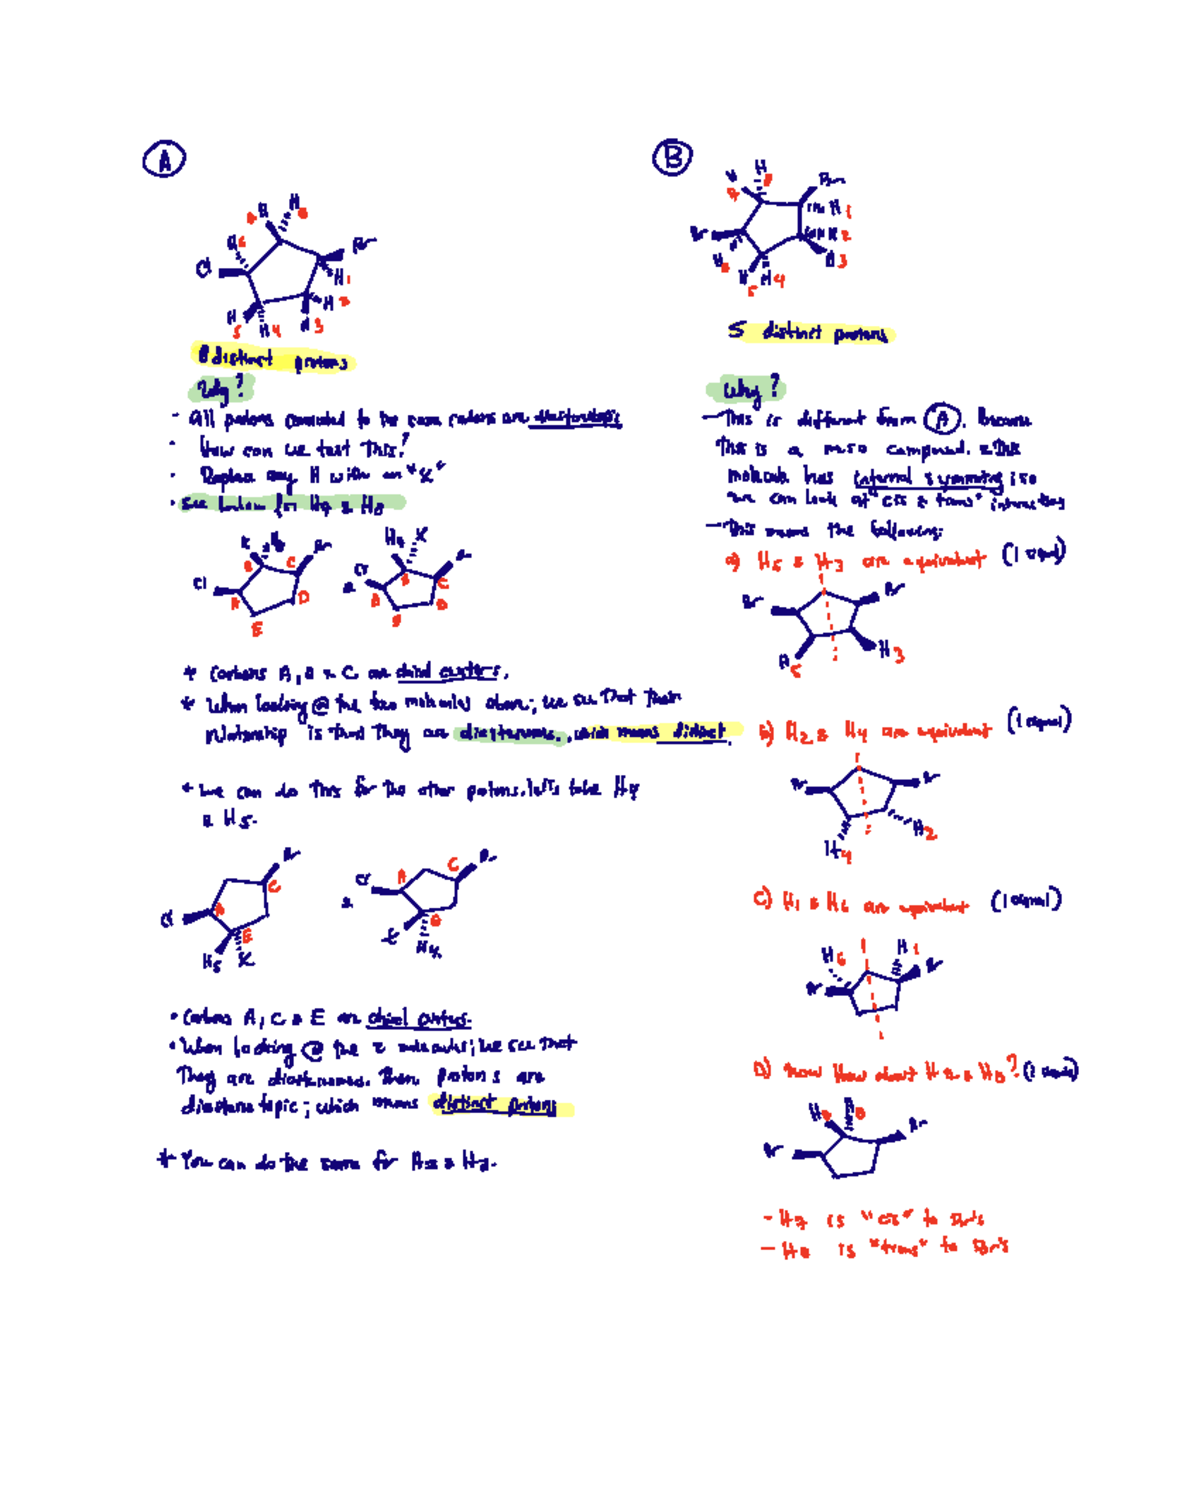 A
H H 8
H 6
Cl
Br
H 1
H 2
H 3
H 4
H 5
8 distinct protons
Why?
- All protons connected to the same carbons are diastereotopic
- How can we test this?
- Replace any H with an "X"
- See below for H7 & H8
X H8 Br
Cl
A B C D E
&
H7 X Br
Cl
A B C D E
* Carbons A, B & C are chiral centers.
* When looking @ the two molecules above; we see that their
relationship is that they are diastereomers, which means distinct.
* We can do this for the other protons. let's take H4
& H5.
Br
Cl
A C E
H5 X
&
Cl A C Br
E
X H4
• Carbons A, C & E are chiral centers.
• When looking @ the 2 molecules; we see that
They are diastereomers. Then protons are
diastereotopic; which means distinct protons
* You can do the same for H2 & H3.
B
H 7
H 8
Br
H 1
H 2
H 3
Br
H 6
H 5
H 4
5 distinct protons
Why?
- This is different from A. Because
This is a meso compound. This
molecule has internal symmetry; so
we can look at "cis & trans" interactions
- This means the following:
a) H5 & H3 are equivalent (1 signal)
Br
Br
H 5
H 3
b) H2 & H4 are equivalent (1 signal)
Br
Br
H4
H2
C) H1 & H6 are equivalent (1 signal)
H 6
H 1
Br
Br
D) Now How about H7 & H8? (2 signals)
H7 H8
Br
Br
- H7 is "cis" to Br's
- H8 is "trans" to Br's